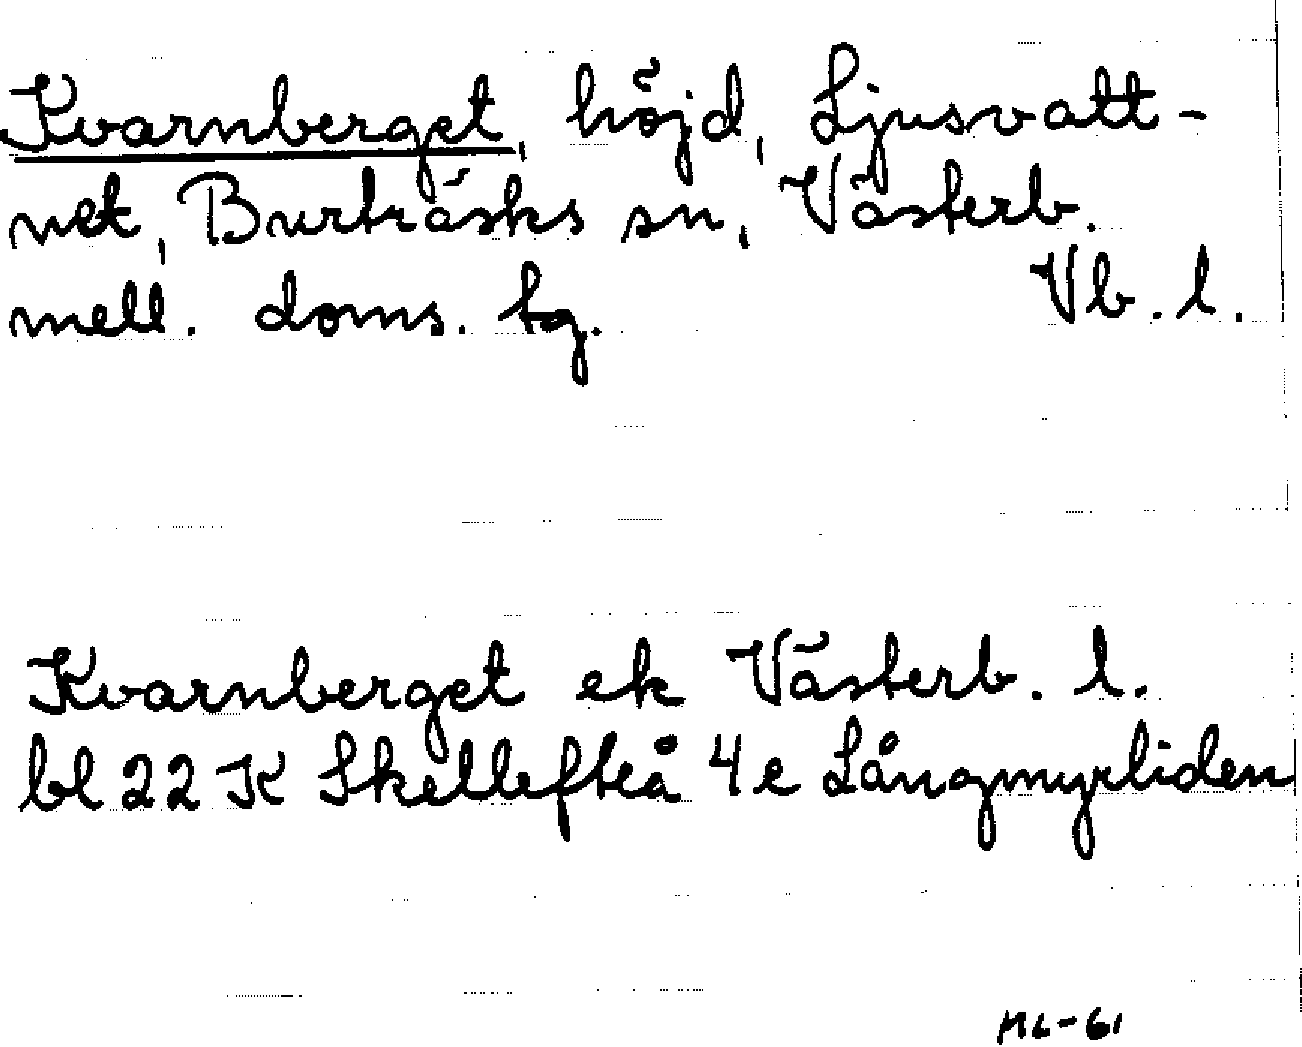 Kvarnberget, höjd, Ljusvatt-
net, Burträsks sn, Västerb.
mell. doms. tg. Vb. l.
Kvarnberget ek Västerb. l.
bl 22 K Skellefteå 4 e Långmyrliden
ML-61